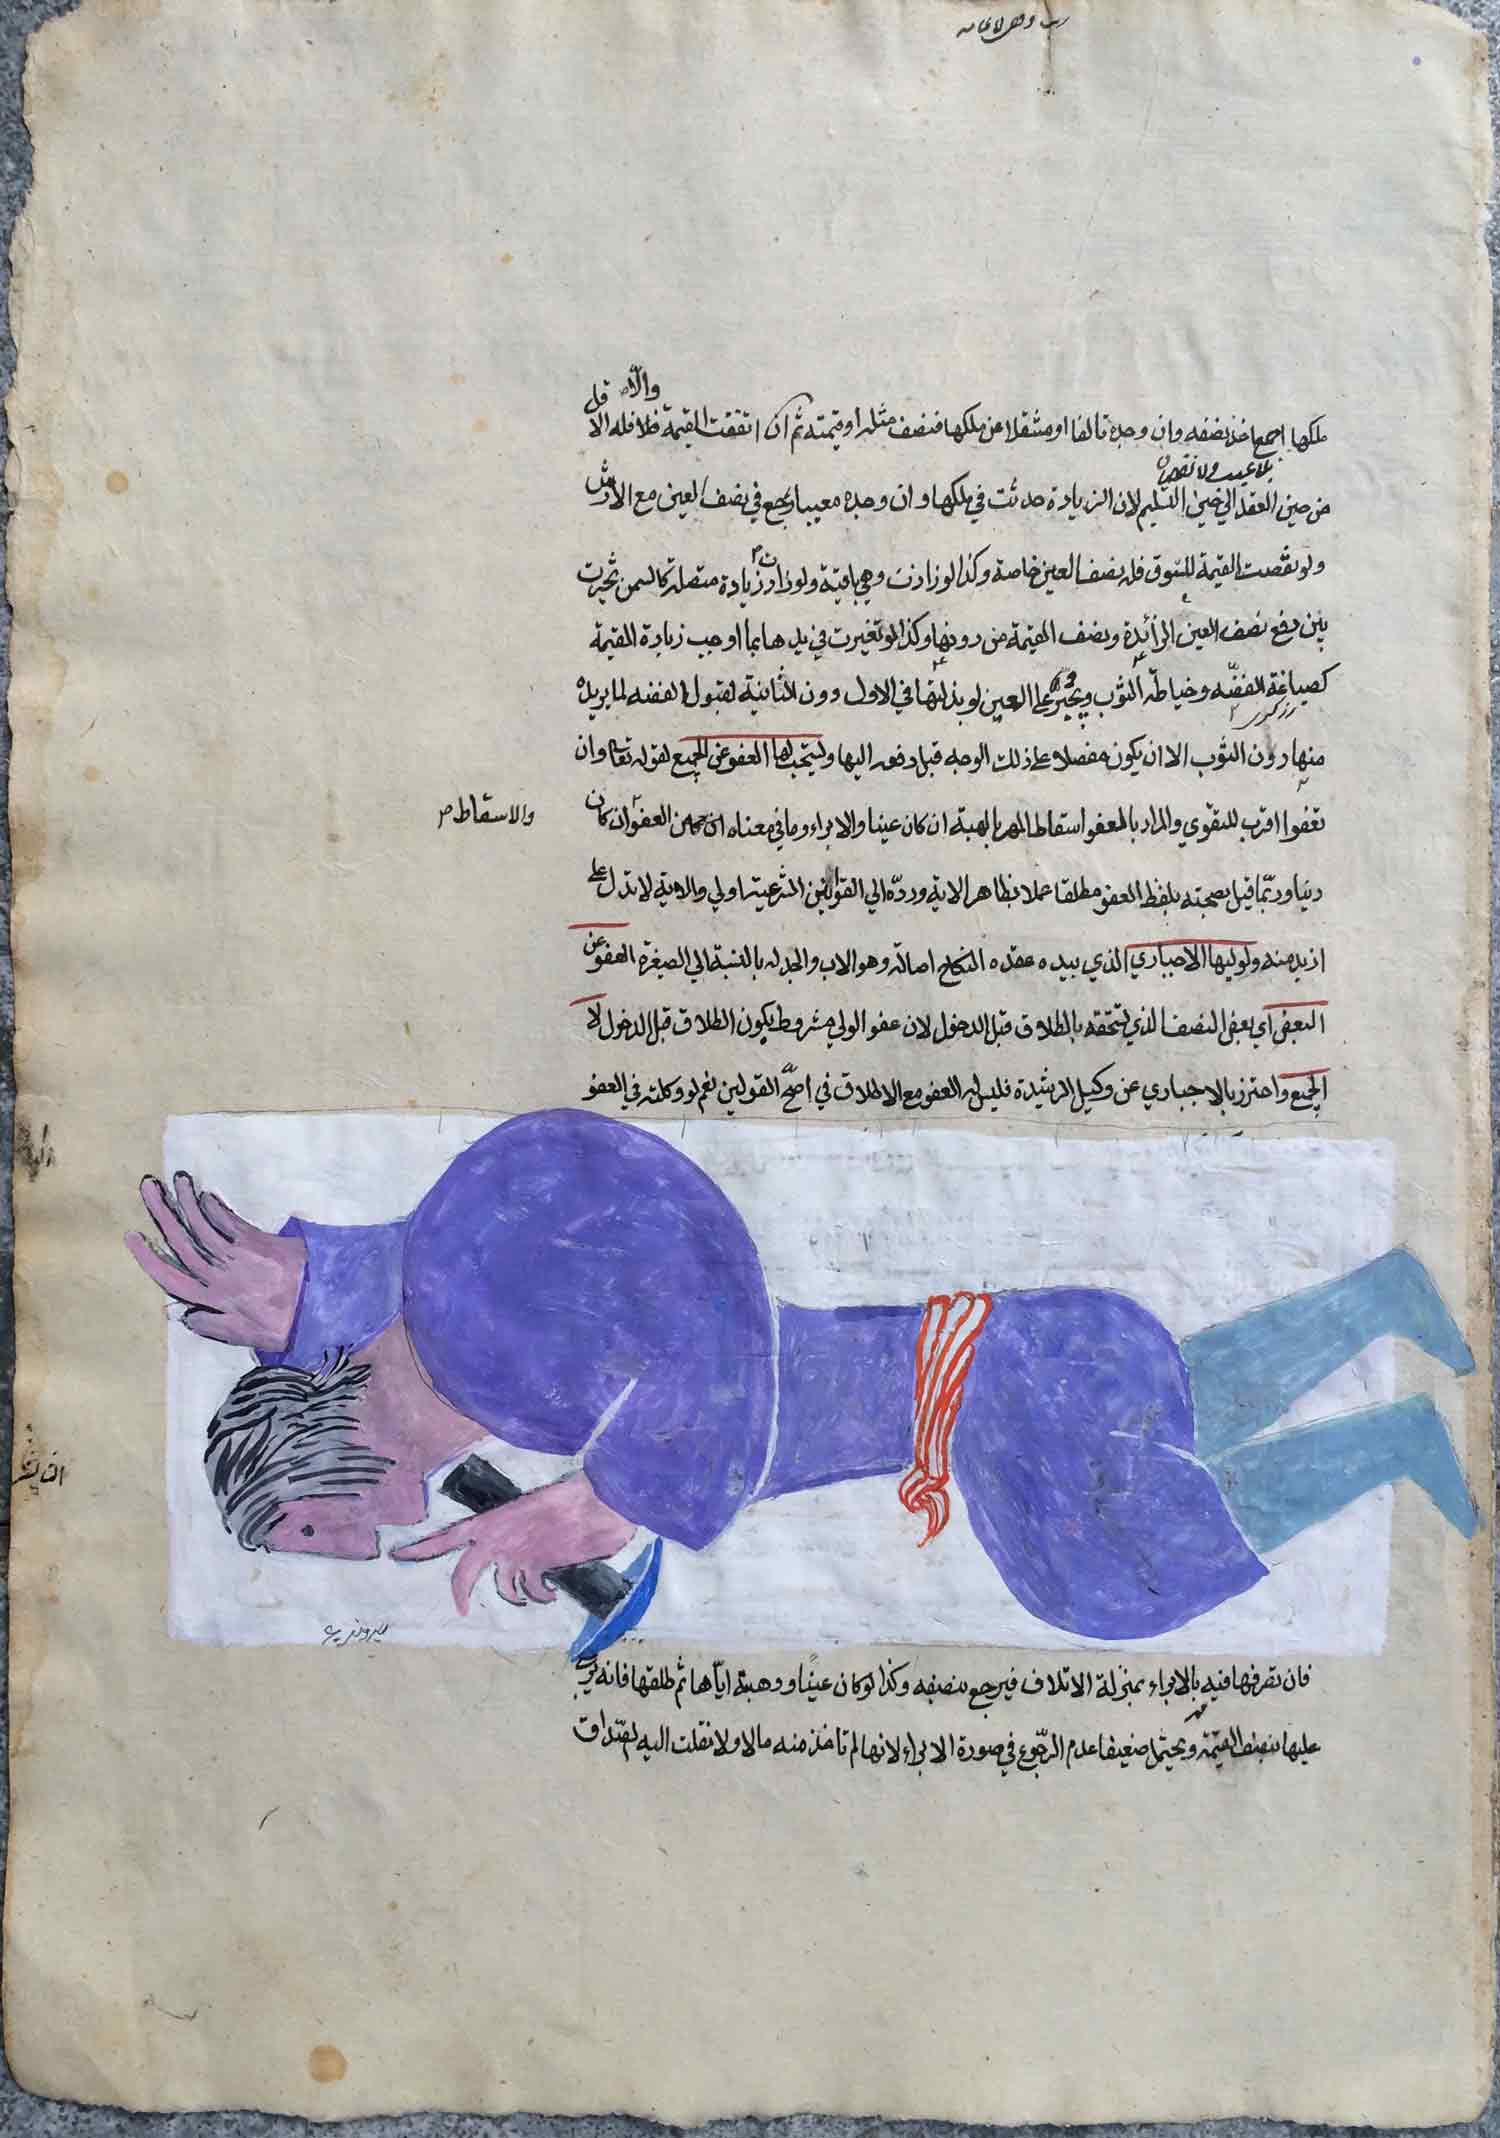 ملكها اجمع اخذ نصفه وان وجده تالفا او منتقلا عن ملكها فنصف مثله او قيمته ثم ان اتفقت القيمة فلا فله الاقل
والا
من حين العقد الى حين التسليم لان الزيادة حدثت في ملكها وان وجده معيبا رجع في نصف العين مع الارش
بلا عيب ولا نقصان
ولو نقصت القيمة للسوق فله نصف العين خاصة وكذا لو زادت وهي باقية ولو زاد زيادة متصلة كالسمن تخيرت
بين دفع نصف العين الزائدة ونصف القيمة من دونها وكذا لو تغيرت في يدها بما اوجب زيادة القيمة
كصياغة الفضة وخياطة الثوب ويجبر على العين لو بذلتها في الاول دون الثانية لقبول الفضة لما يريده
منها دون الثوب الا ان يكون مفصلا على ذلك الوجه قبل دفعه اليها ويستحب لها العفو عن الجميع لقوله تعالى وان
تعفوا اقرب للتقوي والمراد بالعفو اسقاط المهر بالهبة ان كان عينا والابراء وما في معناه من العفو ان كان
والاسقاط
دينا وربما قيل بصحته بلفظ العفو مطلقا عملا بظاهر الاية ورده الي القوانين الشرعية اولي والاية لا تدل على
ازيد منه ولوليها الاجباري الذي بيده عقدة النكاح اصالة وهو الاب والجد له بالنسبة الي الصغيرة العفو عن
البعض اي بعض النصف الذي تستحقه بالطلاق قبل الدخول لان عفو الولي مشروط بكون الطلاق قبل الدخول لا
الجميع واحترز بالاجباري عن وكيل الرشيدة فليس له العفو مع الاطلاق في اصح القولين نعم لو وكلته في العفو
فان تصرفها فيه بالابراء بمنزلة الاتلاف فيرجع بنصفه وكذا لو كان عينا ووهبته اياها ثم طلقها فانه يرجع
عليها بنصف القيمة ويحتمل ضعيفا عدم الرجوع في صورة الابراء لانها لم تاخذ منه مالا ولا نقلت اليه الصداق